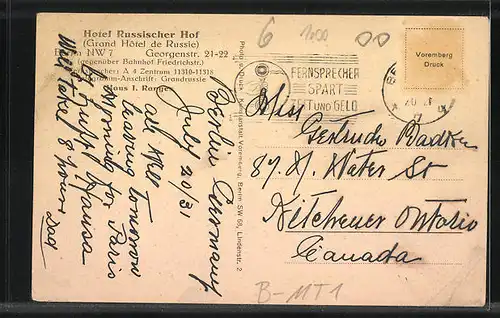 Hotel Russischer Hof
(Grand Hôtel de Russie)
Berlin NW 7 Georgenstr. 21-22
(gegenüber Bahnhof Friedrichstr.)
A 4 Zentrum 11310-11318
Grandrussie
Haus I. Ranges
Berlin Germany
July 20/31
all well
leaving tomorrow
morning for Paris
by Luft Hansa
Will take 8 hours
Dad
Berlin SW 68, Lindenstr. 2
6 1200
FERNSPRECHER
SPART
ZEIT UND GELD
Voremberg
Druck
Miss
Gertrude Badke
87. N. Water St
Kitchener Ontario
Canada
B-MT1